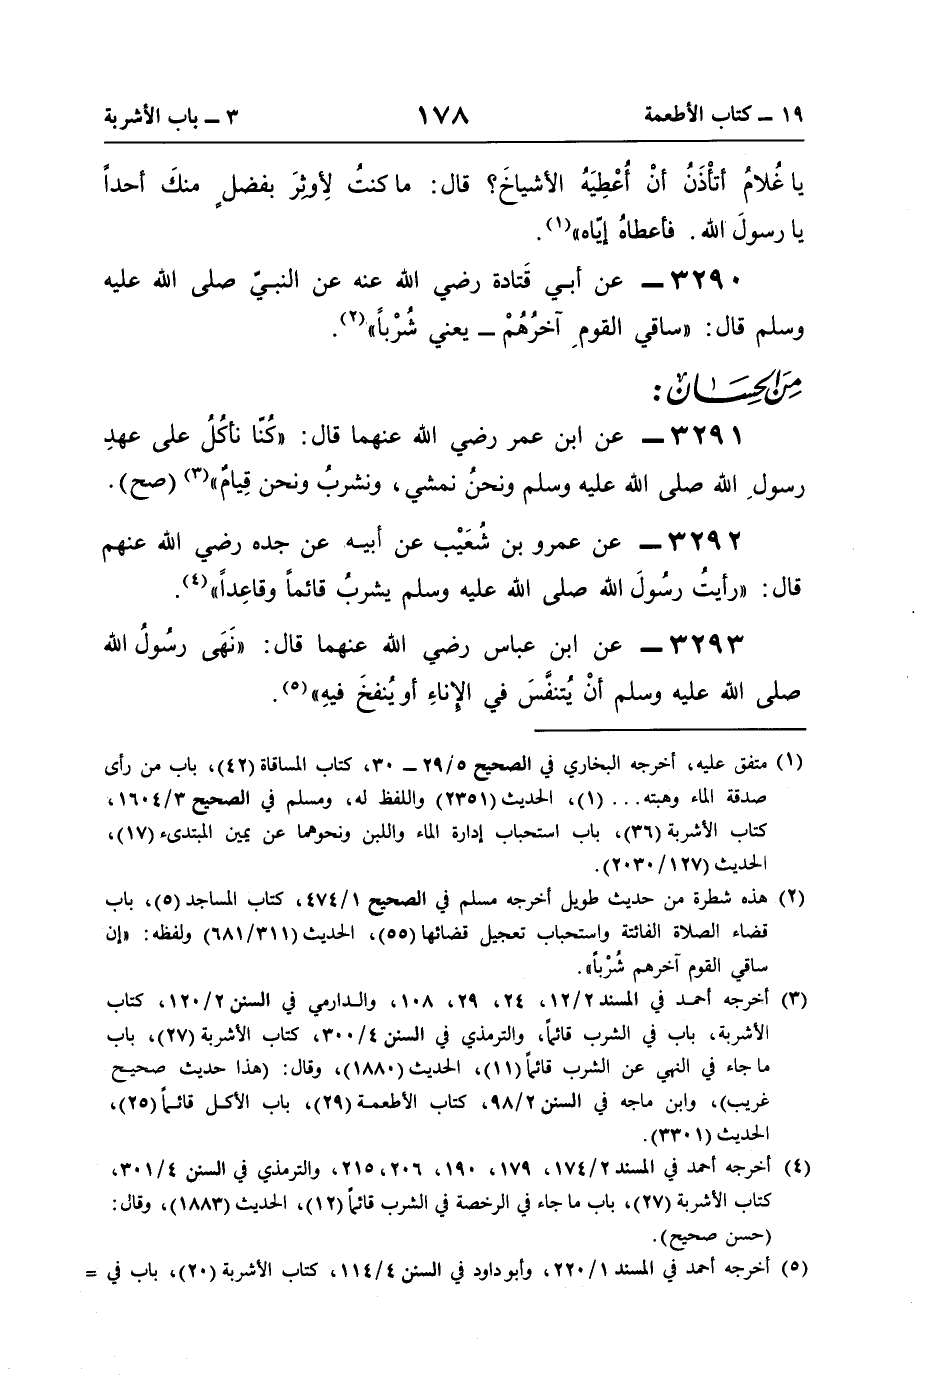 ١٩ ــ كتاب الأطعمة ١٧٨ ٣ ــ باب الأشربة
يا غُلامُ أتأْذَنُ أنْ أُعْطِيَهُ الأشياخَ؟ قال: ما كنتُ لِأوثِرَ بفضلٍ منكَ أحداً
يا رسولَ الله. فأعطاهُ إيّاه»(١).
٣٢٩٠ ــ عن أبي قَتادة رضي الله عنه عن النبيّ صلى الله عليه
وسلم قال: «ساقي القومِ آخرُهُمْ ــ يعني شُرْباً»(٢).
مِنَ الحِسَان:
٣٢٩١ ــ عن ابن عمر رضي الله عنهما قال: «كُنّا نأكُلُ على عهدِ
رسولِ الله صلى الله عليه وسلم ونحنُ نمشي، ونشربُ ونحن قِيامٌ»(٣) (صح).
٣٢٩٢ ــ عن عمرو بن شُعَيْب عن أبيه عن جده رضي الله عنهم
قال: «رأيتُ رسُولَ الله صلى الله عليه وسلم يشربُ قائماً وقاعِداً»(٤).
٣٢٩٣ ــ عن ابن عباس رضي الله عنهما قال: «نَهَى رسُولُ الله
صلى الله عليه وسلم أنْ يُتنفَّسَ في الإِناءِ أو يُنفخَ فيهِ»(٥).
(١) متفق عليه، أخرجه البخاري في الصحيح ٢٩/٥ ــ ٣٠، كتاب المساقاة (٤٢)، باب من رأى
صدقة الماء وهبته... (١)، الحديث (٢٣٥١) واللفظ له، ومسلم في الصحيح ١٦٠٤/٣،
كتاب الأشربة (٣٦)، باب استحباب إدارة الماء واللبن ونحوهما عن يمين المبتدىء (١٧)،
الحديث (٢٠٣٠/١٢٧).
(٢) هذه شطرة من حديث طويل أخرجه مسلم في الصحيح ٤٧٤/١، كتاب المساجد (٥)، باب
قضاء الصلاة الفائتة واستحباب تعجيل قضائها (٥٥)، الحديث (٦٨١/٣١١) ولفظه: «إن
ساقي القوم آخرهم شُرْباً».
(٣) أخرجه أحمد في المسند ١٢/٢، ٢٤، ٢٩، ١٠٨، والدارمي في السنن ١٢٠/٢، كتاب
الأشربة، باب في الشرب قائماً، والترمذي في السنن ٣٠٠/٤، كتاب الأشربة (٢٧)، باب
ما جاء في النهي عن الشرب قائماً (١١)، الحديث (١٨٨٠)، وقال: (هذا حديث صحيح
غريب)، وابن ماجه في السنن ٩٨/٢، كتاب الأطعمة (٢٩)، باب الأكل قائماً (٢٥)،
الحديث (٣٣٠١).
(٤) أخرجه أحمد في المسند ١٧٤/٢، ١٧٩، ١٩٠، ٢٠٦، ٢١٥، والترمذي في السنن ٣٠١/٤،
كتاب الأشربة (٢٧)، باب ما جاء في الرخصة في الشرب قائماً (١٢)، الحديث (١٨٨٣)، وقال:
(حسن صحيح).
(٥) أخرجه أحمد في المسند ٢٢٠/١، وأبو داود في السنن ١١٤/٤، كتاب الأشربة (٢٠)، باب في =